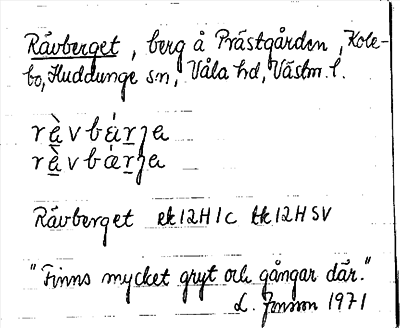 Rävberget, berg å Prästgården, Kole-
bo, Huddunge sn, Våla hd, Västm. l.
rä̀vbárʒa
rä̀vbǽrʒa
Rävberget ek12H1c tk12HSV
"Finns mycket gryt och gångar där."
L. Jonson 1971